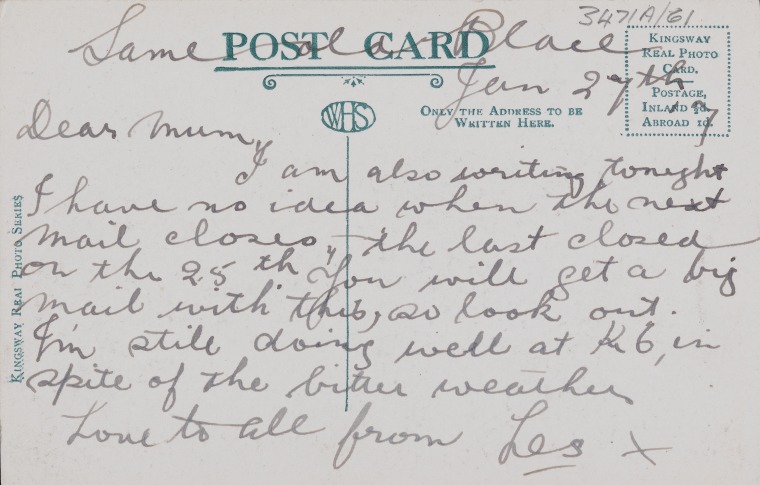 3471A/61
POST CARD
Same old Place
Jan 27th 17
KINGSWAY
REAL PHOTO
CARD.
POSTAGE,
INLAND ½d.
ABROAD 1d.
ONLY THE ADDRESS TO BE
WRITTEN HERE.
WHS
KINGSWAY REAL PHOTO SERIES
Dear Mum,
I am also writing tonight
I have no idea when the next
mail closes, the last closed
on the 25th. You will get a big
mail with this, so look out.
I'm still doing well at K6, in
spite of the bitter weather
Love to all from Les x